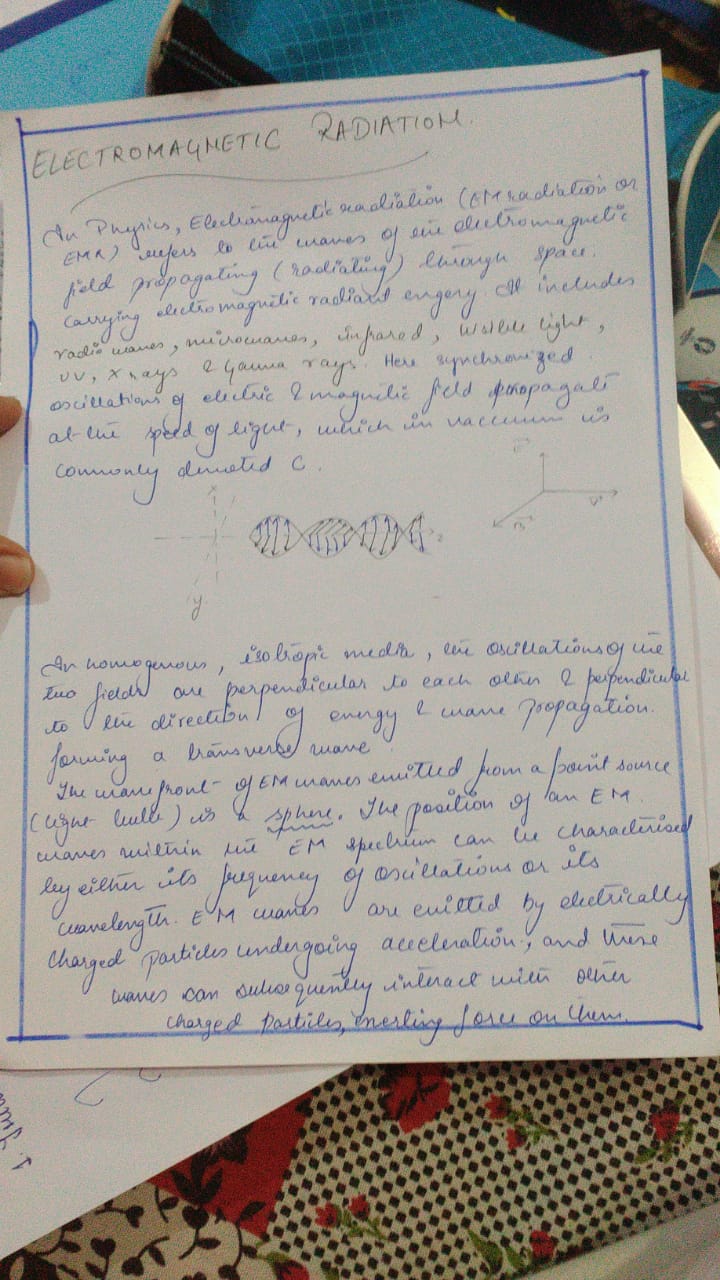 ELECTROMAGNETIC RADIATION.
In Physics, Electromagnetic radiation (EM radiation or
EMR) refers to the waves of the electromagnetic
field propagating (radiating) through space.
carrying electromagnetic radiant engery. It includes
radio waves, microwaves, infrared, visible light,
UV, X rays & Gamma rays. Here synchronized
oscillations of electric & magnetic field propagate
at the speed of light, which in vacuum is
commonly denoted C.
x
y
z
E
B
V
In homogenous, isotropic media, the oscillations of the
two fields are perpendicular to each other & perpendicular
to the direction of energy & wave propagation.
forming a transverse wave.
The wavefront of EM waves emitted from a point source
(light bulb) is a sphere. The position of an EM
waves within the EM spectrum can be characterised
by either its frequency of oscillations or its
wavelength. EM waves are emitted by electrically
charged particles undergoing acceleration, and these
waves can subsequently interact with other
charged particles, exerting force on them.